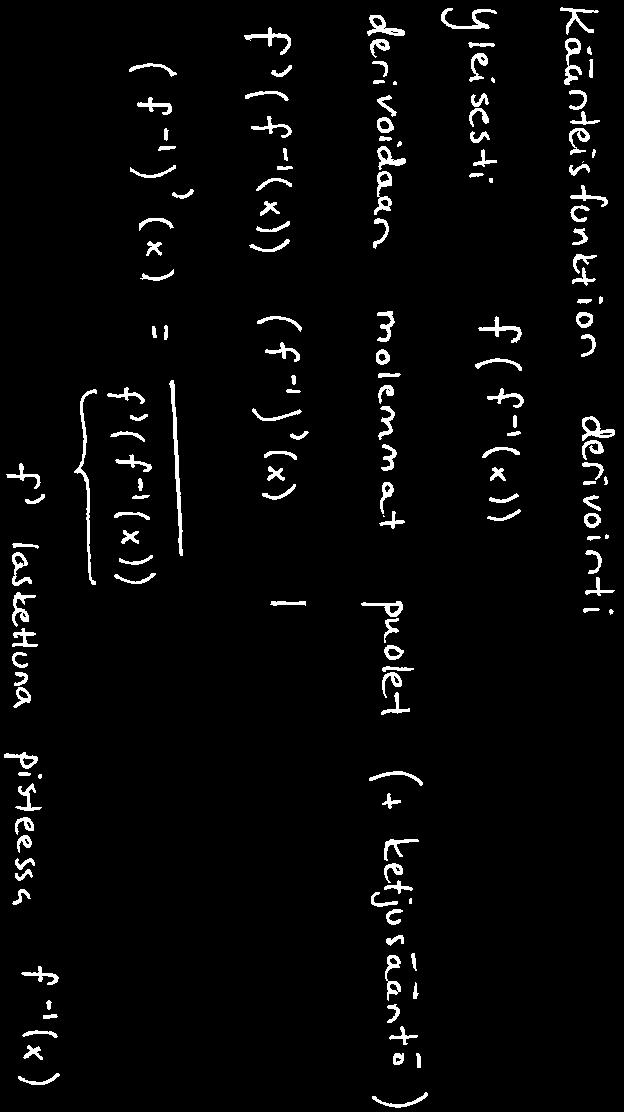 Käänteisfunktion derivointi
Yleisesti f(f⁻¹(x))
derivoidaan molemmat puolet (+ ketjusääntö)
f'(f⁻¹(x)) (f⁻¹)'(x) 1
(f⁻¹)'(x) = ―
f'(f⁻¹(x))
f' laskettuna pisteessä f⁻¹(x)